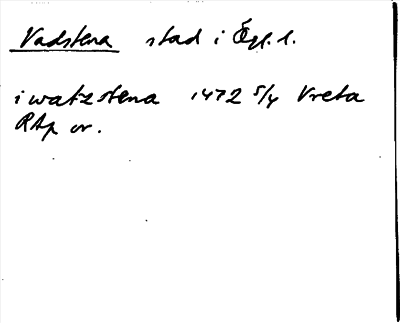 Vadstena stad i Ögl. l.
i watzstena 1472 5/4 Vreta
RAp or.